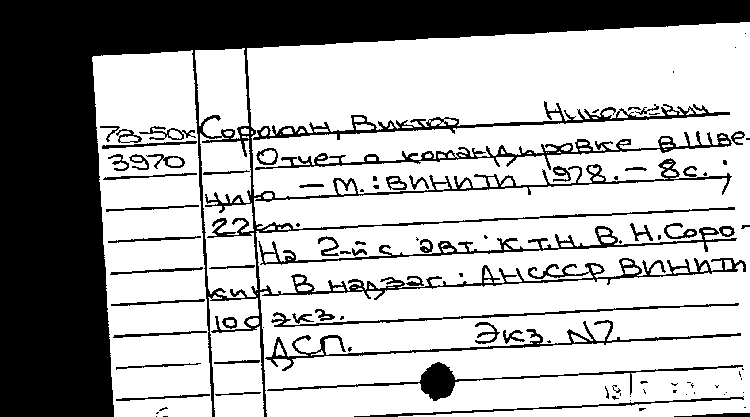 78-50к Сорокин, Виктор Николаевич
3970 Отчет о командировке в Шве-
цию. — М.: ВИНИТИ, 1978. — 8с.;
22см.
На 2-й с. авт.: к.т.н. В. Н. Соро-
кин. В надзаг.: АН СССР, ВИНИТИ
100 экз.
ДСП. Экз. N7.
19